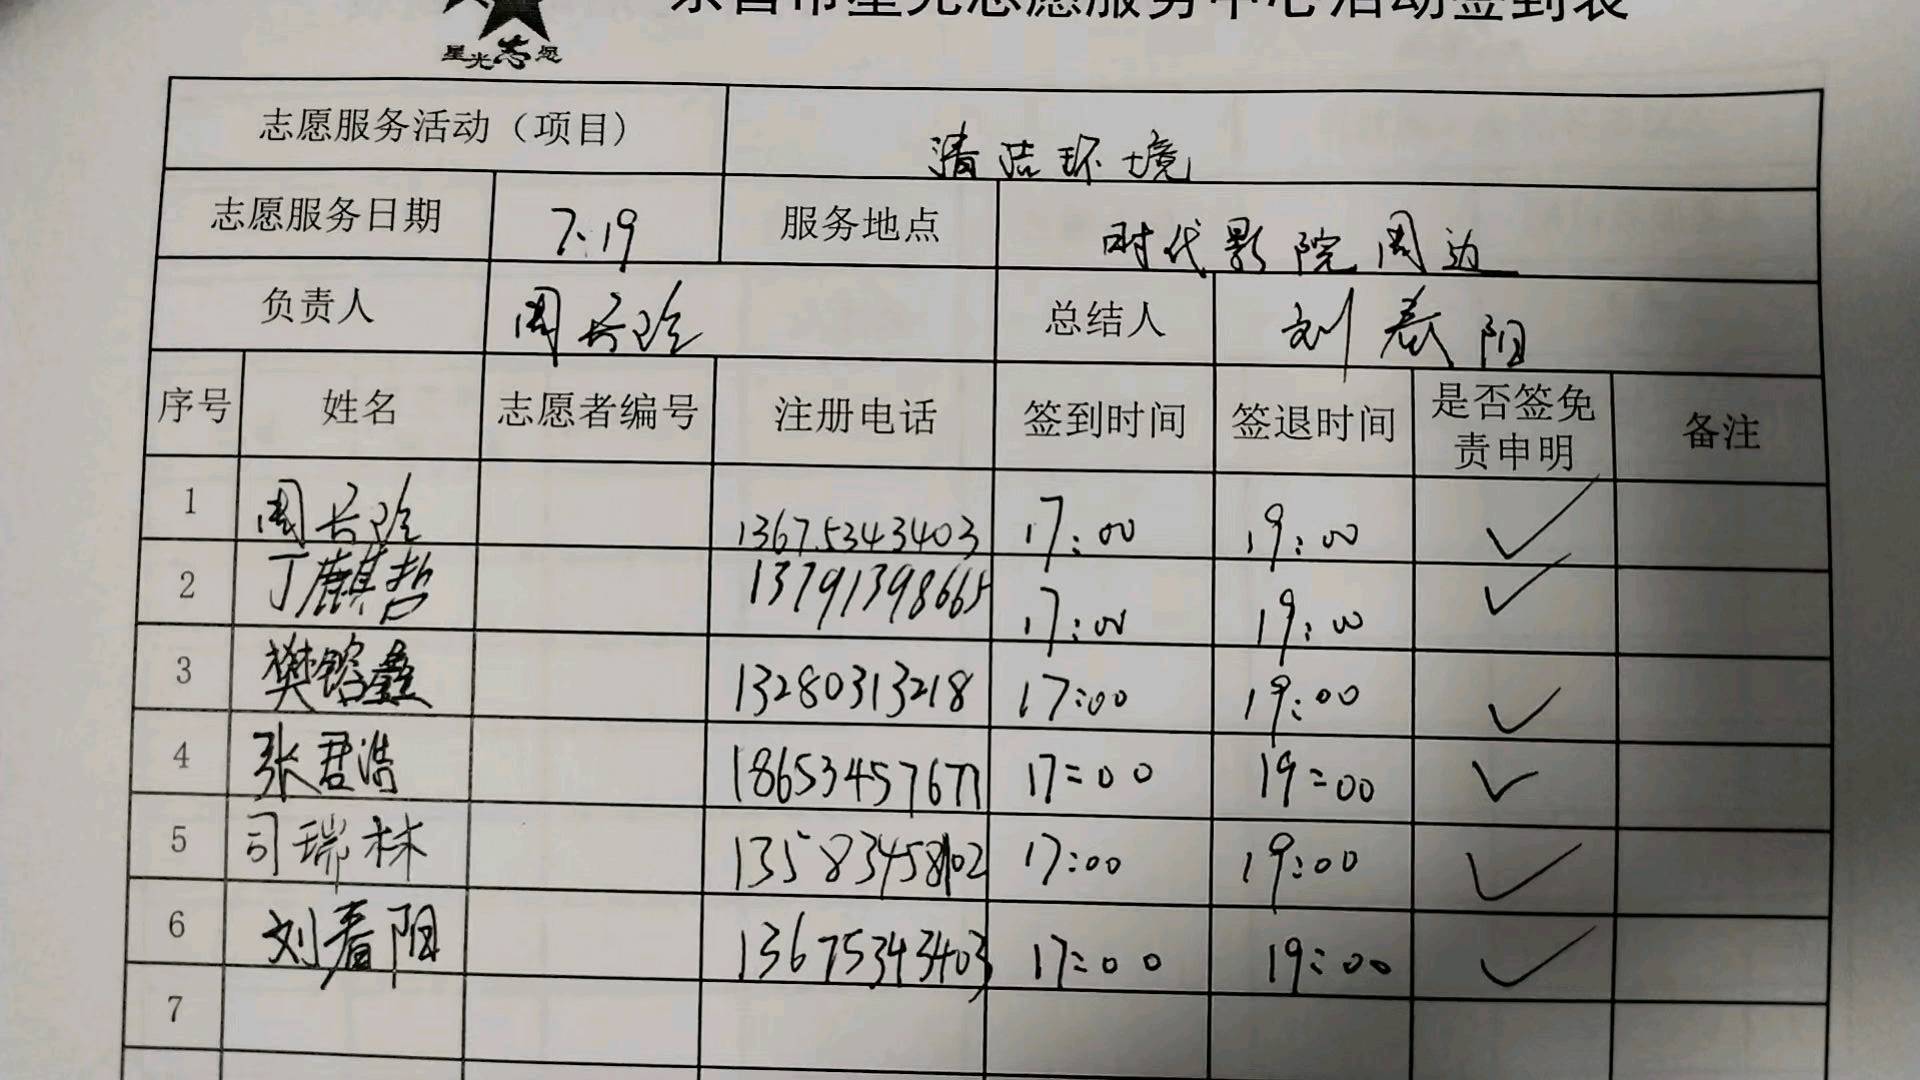 星光志愿服务中心活动签到表
星光志愿
志愿服务活动（项目） 清洁环境
志愿服务日期 7.19 服务地点 时代影院周边
负责人 周长玲 总结人 刘春阳
序号 姓名 志愿者编号 注册电话 签到时间 签退时间 是否签免责申明 备注
1 周长玲 13675343403 17:00 19:00 ✓
2 丁麒哲 13791398665 17:00 19:00 ✓
3 樊镕鑫 13280313218 17:00 19:00 ✓
4 张君浩 18653457677 17:00 19:00 ✓
5 司瑞林 13583458102 17:00 19:00 ✓
6 刘春阳 13675343403 17:00 19:00 ✓
7